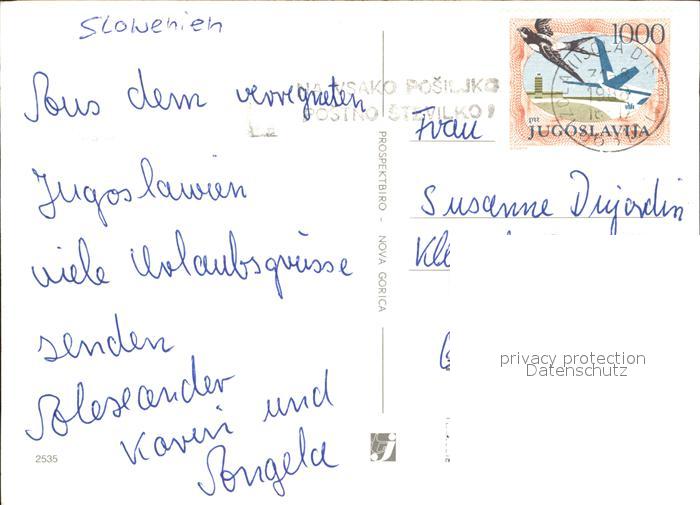 Slowenien
Aus dem verregneten
Jugoslawien
viele Urlaubsgrüsse
senden
Alexander
Karin und
Angela
2535
PROSPEKTBIRO - NOVA GORICA
NA VSAKO POŠILJKO
POŠTNO ŠTEVILKO!
1000
JUGOSLAVIJA
Frau
Susanne Dujardin
privacy protection
Datenschutz